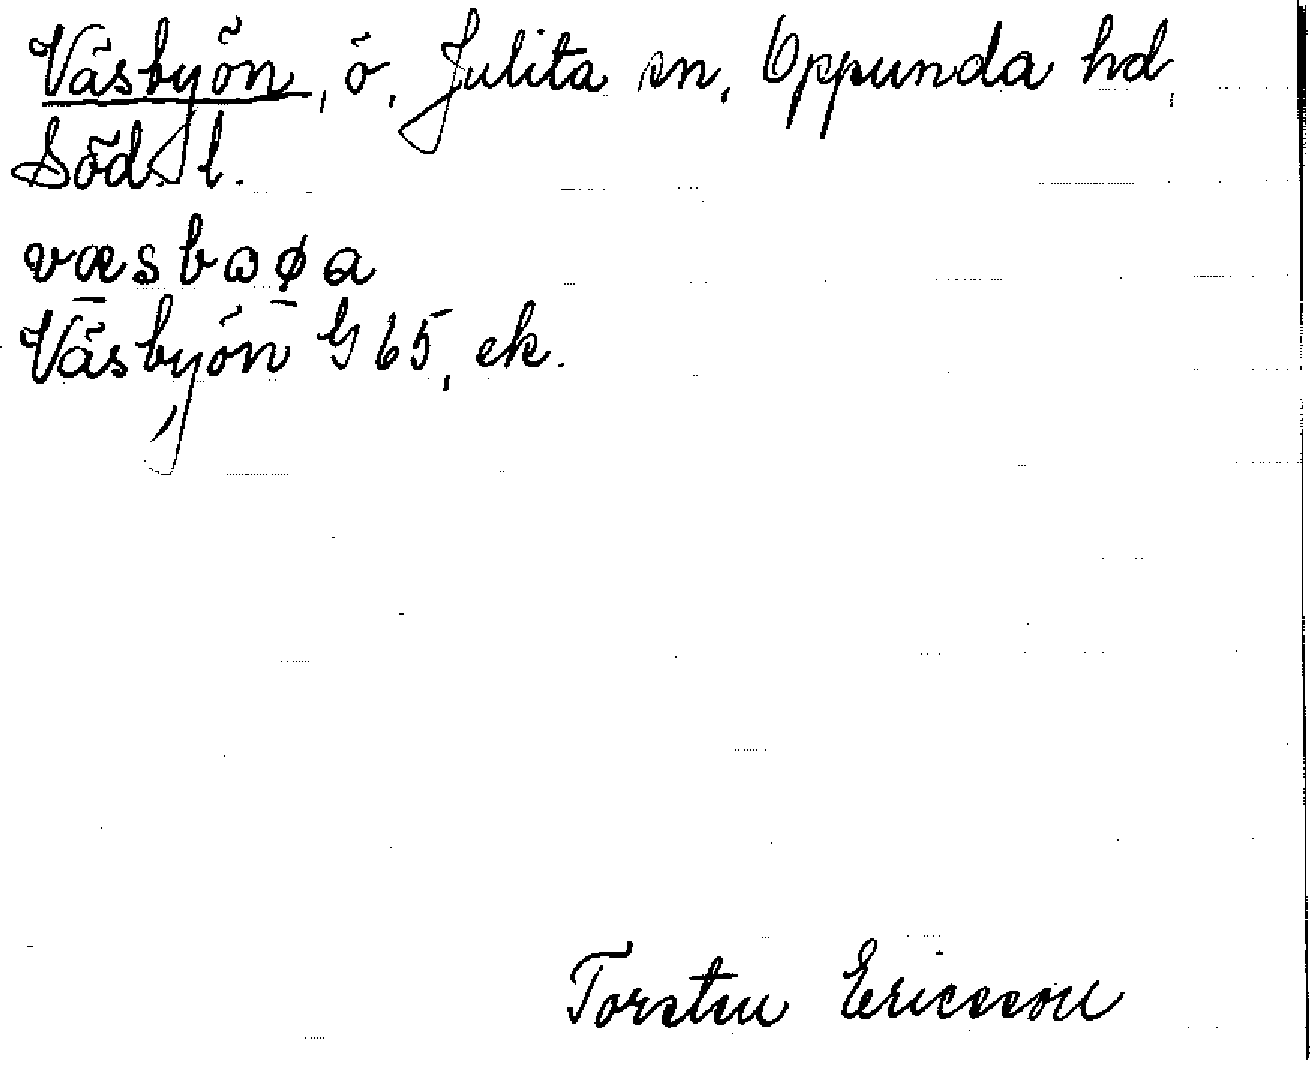 Väsbyön, ö, Julita sn, Oppunda hd,
Söd. l.
væsbɷøa
Väsbyön G 65, ek.
Torsten Ericsson